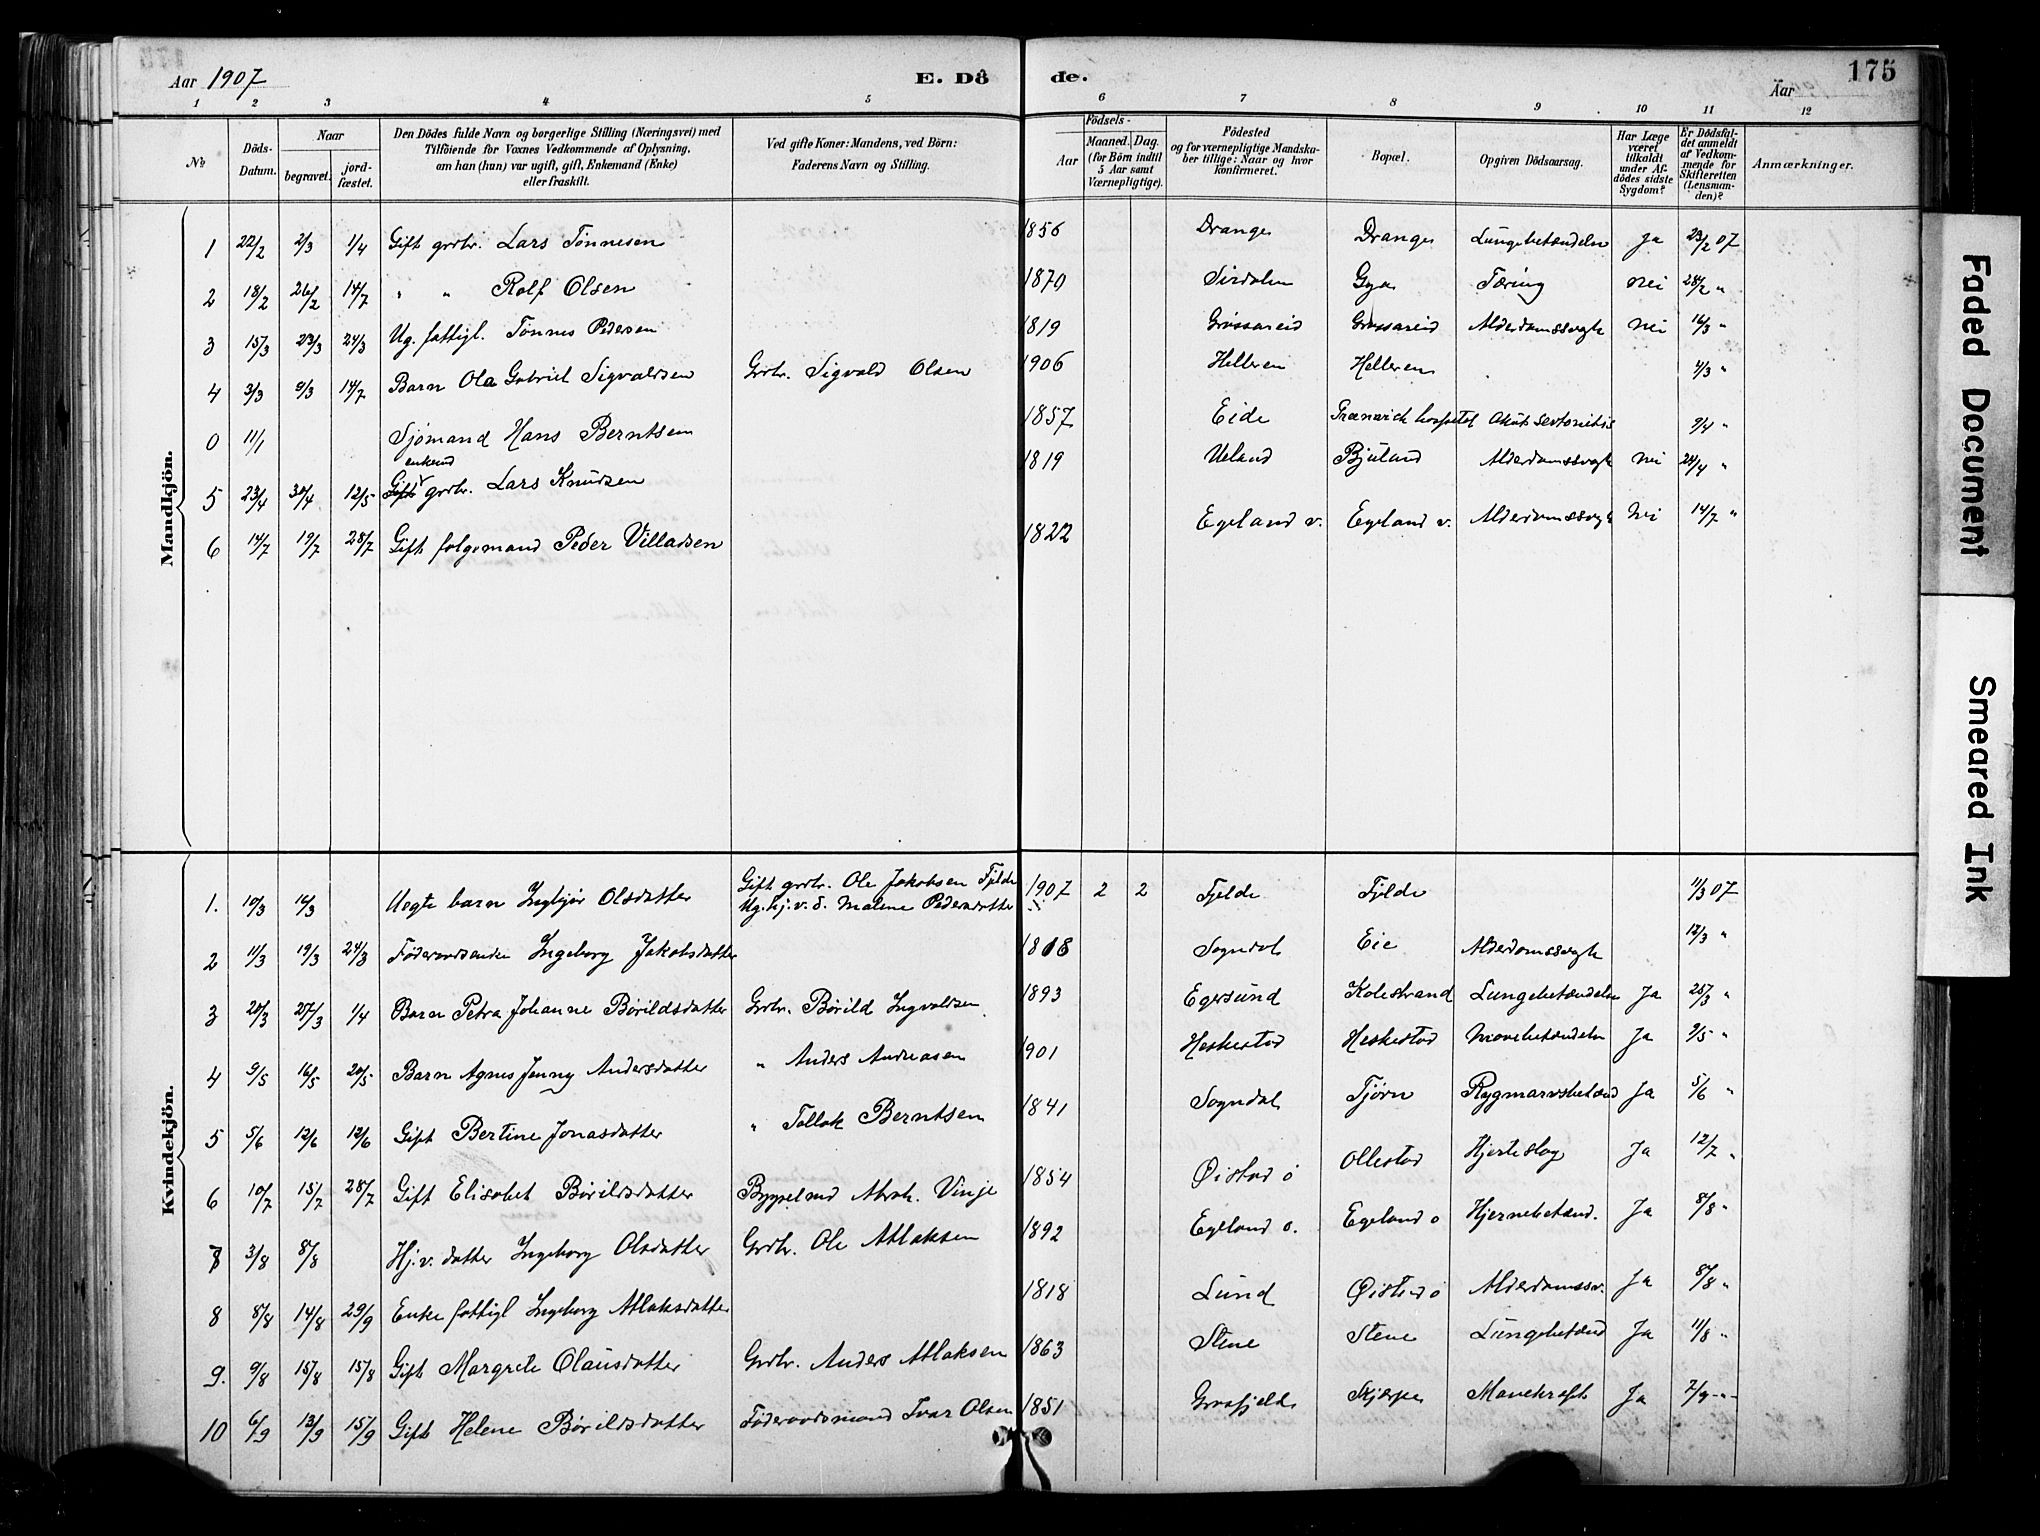 Aar 1907
E. Dö
de.
Aar
175
1 2 3 4 5 6 7 8 9 10 11 12
No
Döds-Datum.
Naar
begravet.
jord-fæstet.
Den Dödes fulde Navn og borgerlige Stilling (Næringsvei) med
Tilföiende for Voxnes Vedkommende af Oplysning,
om han (hun) var ugift, gift, Enkemand (Enke)
eller fraskilt.
Ved gifte Koner: Mandens, ved Börn:
Faderens Navn og Stilling.
Födsels-
Aar
Maaned. Dag.
(for Börn indtil
5 Aar samt
Værnepligtige).
Födested
og for værnepligtige Mandska-
ber tillige: Naar og hvor
konfirmeret.
Bopæl.
Opgiven Dödsaarsag.
Har Læge
været
tilkaldt
under Af-
dödes sidste
Sygdom?
Er Dödsfal-
det anmeldt
af Vedkom-
mende for
Skifteretten
(Lensman-
den)?
Anmærkninger.
Mandkjön.
1 22/2 2/3 1/4 Gift grdbr. Lars Tönnesen 1856 Drange Drange Lungebetændelse Ja 23/2 07
2 18/2 26/2 14/7 " " Rolf Olsen 1870 Sirdalen Gya Tæring nei 28/2 "
3 15/3 23/3 24/3 Ug. fattigl. Tönnes Pedersen 1819 Grössareid Grössareid Alderdomssvagh nei 16/3 "
4 3/3 9/3 14/7 Barn Ola Gabriel Sigvaldsen Grdbr. Sigvald Olsen 1906 Helleren Helleren 4/3 "
0 11/1 Sjömand Hans Berntsen 1857 Eide hospital 9/4 "
enkemd
5 23/4 30/4 12/5 Gift grdbr. Lars Knudsen 1819 Ueland Bjuland Alderdomssvagh nei 24/4 "
6 14/7 19/7 28/7 Gift folgemand Peder Villadsen 1822 Egeland v. Egeland v. Alderdomssvagh nei 14/7 "
Kvindekjön.
1. 10/3 16/3 Uegte barn Ingbjör Olsdatter Gift grdbr. Ole Jakobsen Fjelde
Ug. hj.v.d. Malene Pedersdatter 1907 2 2 Fjelde Fjelde 11/3 07
2 11/3 19/3 24/3 Föderaadsenke Ingeborg Jakobsdatter 1818 Sogndal Eie Alderdomssvagh 12/3 "
3 20/3 27/3 1/4 Barn Petra Johanne Börildsdatter Grdbr. Börild Ingvaldsen 1893 Egersund Kolestrand Lungebetændelse Ja 25/3 "
4 9/5 16/5 20/5 Barn Agnes Jenny Andersdatter " Anders Andreasen 1901 Heskestad Heskestad Mavebetændelse Ja 9/5 "
5 5/6 12/6 12/6 Gift Bertine Jonasdatter " Tollak Berntsen 1841 Sogndal Tjörn Rygmarvsbetænd Ja 5/6 "
6 10/7 15/7 28/7 Gift Elisabet Börildsdatter Byggelmd Abrah. Vinje 1854 Öistad ö Ollestad Hjerteslag Ja 12/7 "
7 3/8 8/8 Hj.v. datter Ingeborg Olsdatter Grdbr. Ole Atlaksen 1892 Egeland ö. Egeland ö Hjernebetænd. Ja 8/8 "
8 8/8 14/8 29/9 Enke fattigl Ingeborg Atlaksdatter 1818 Lund Öistad ö Alderdomssv. Ja 8/8 "
9. 9/8 15/8 15/8 Gift Margrete Olausdatter Grdbr. Anders Atlaksen 1863 Stene Stene Lungebetænd Ja 11/8 "
10 6/9 13/9 15/9 Gift Helene Börildsdatter Föderaadsmand Ivar Olsen 1851 Grøsfjeld Skjerpe Mavekræft Ja 7/9 "
Faded Document
Smeared Ink